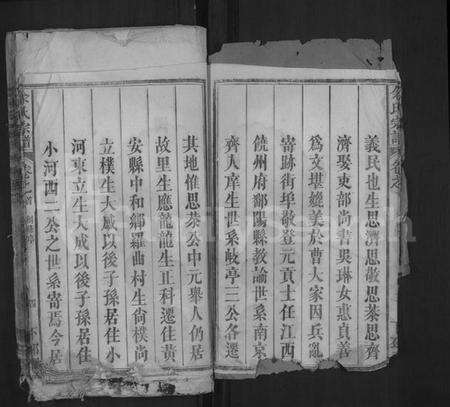 義民也生思濟思敬思恭思齊
濟娶吏部尚書吳琳女惠貞善
為文堪媲美於曹大家因兵亂
寄跡街埠敬登元貢士任江西
饒州府鄱陽縣教諭世系南京
齊人庠生世系岐亭二公各遷
其地惟思恭公中元舉人仍居
故里生應龍龍生正科遷住黃
安縣中和鄉羅曲村生尚樸尚
立樸生大威以後子孫居住小
河東立生大成以後子孫居住
小河西二公之世系寄焉今居
氏宗譜
FamilySearch